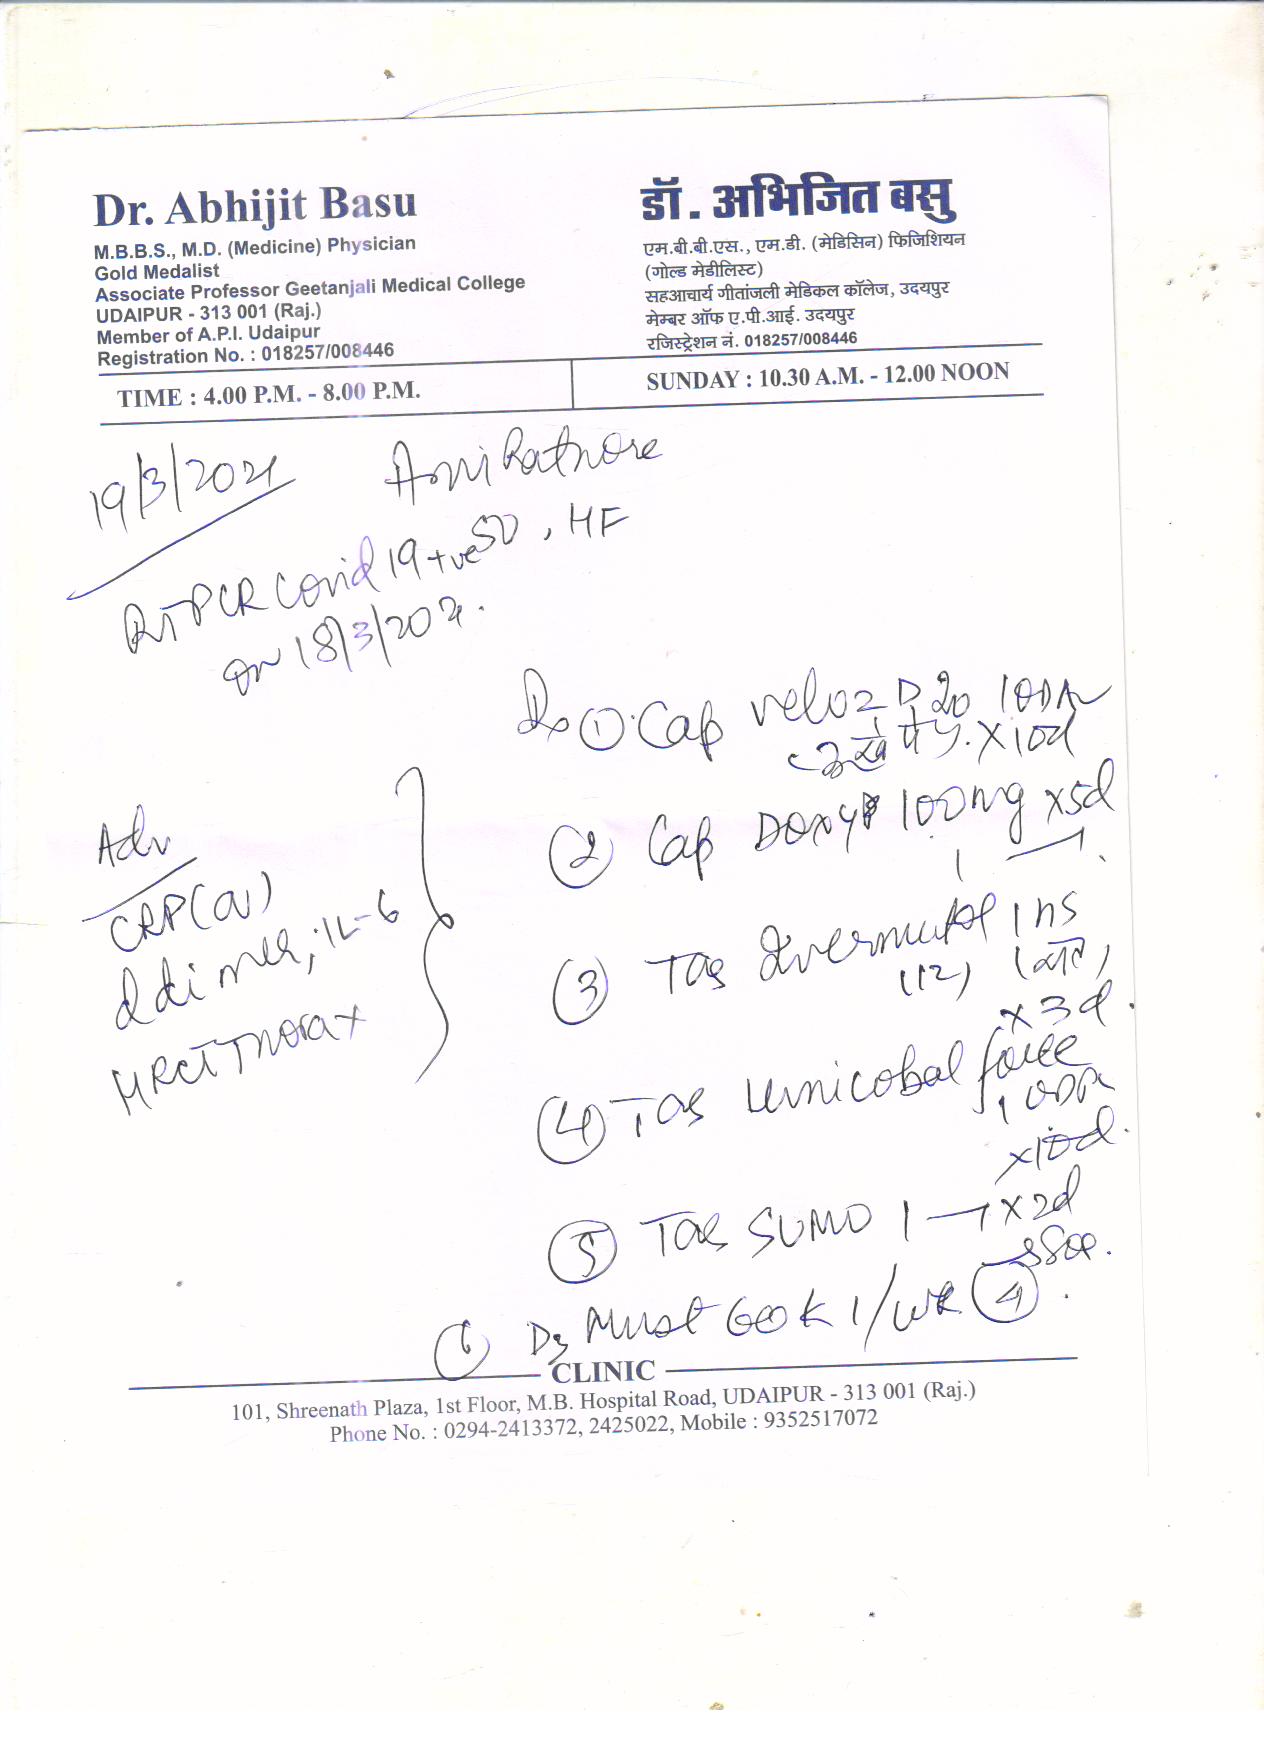 Dr. Abhijit Basu
M.B.B.S., M.D. (Medicine) Physician
Gold Medalist
Associate Professor Geetanjali Medical College
UDAIPUR - 313 001 (Raj.)
Member of A.P.I. Udaipur
Registration No. : 018257/008446
डॉ. अभिजित बसु
एम.बी.बी.एस., एम.डी. (मेडिसिन) फिजिशियन
(गोल्ड मेडीलिस्ट)
सहआचार्य गीतांजली मेडिकल कॉलेज, उदयपुर
मेम्बर ऑफ ए.पी.आई. उदयपुर
रजिस्ट्रेशन नं. 018257/008446
TIME : 4.00 P.M. - 8.00 P.M.
SUNDAY : 10.30 A.M. - 12.00 NOON
19/3/2021
Rathore
SD, HF
RTPCR Covid 19 +ve
on 18/3/2021.
Rx ① Cap veloz D 20 1 OD
x 10d
② Cap Doxy 100mg x 5d
1 — 1
③ Tab 1 HS
(12)
x 3d.
④ Tab force
1 OD
x 10d.
⑤ Tab SUMO 1 — 1 x 2d
SOS.
⑥ D3 Must 60 K 1/wk ④.
Adv
CRP(Q)
d dimer, IL-6
HRCT Thorax
CLINIC
101, Shreenath Plaza, 1st Floor, M.B. Hospital Road, UDAIPUR - 313 001 (Raj.)
Phone No. : 0294-2413372, 2425022, Mobile : 9352517072